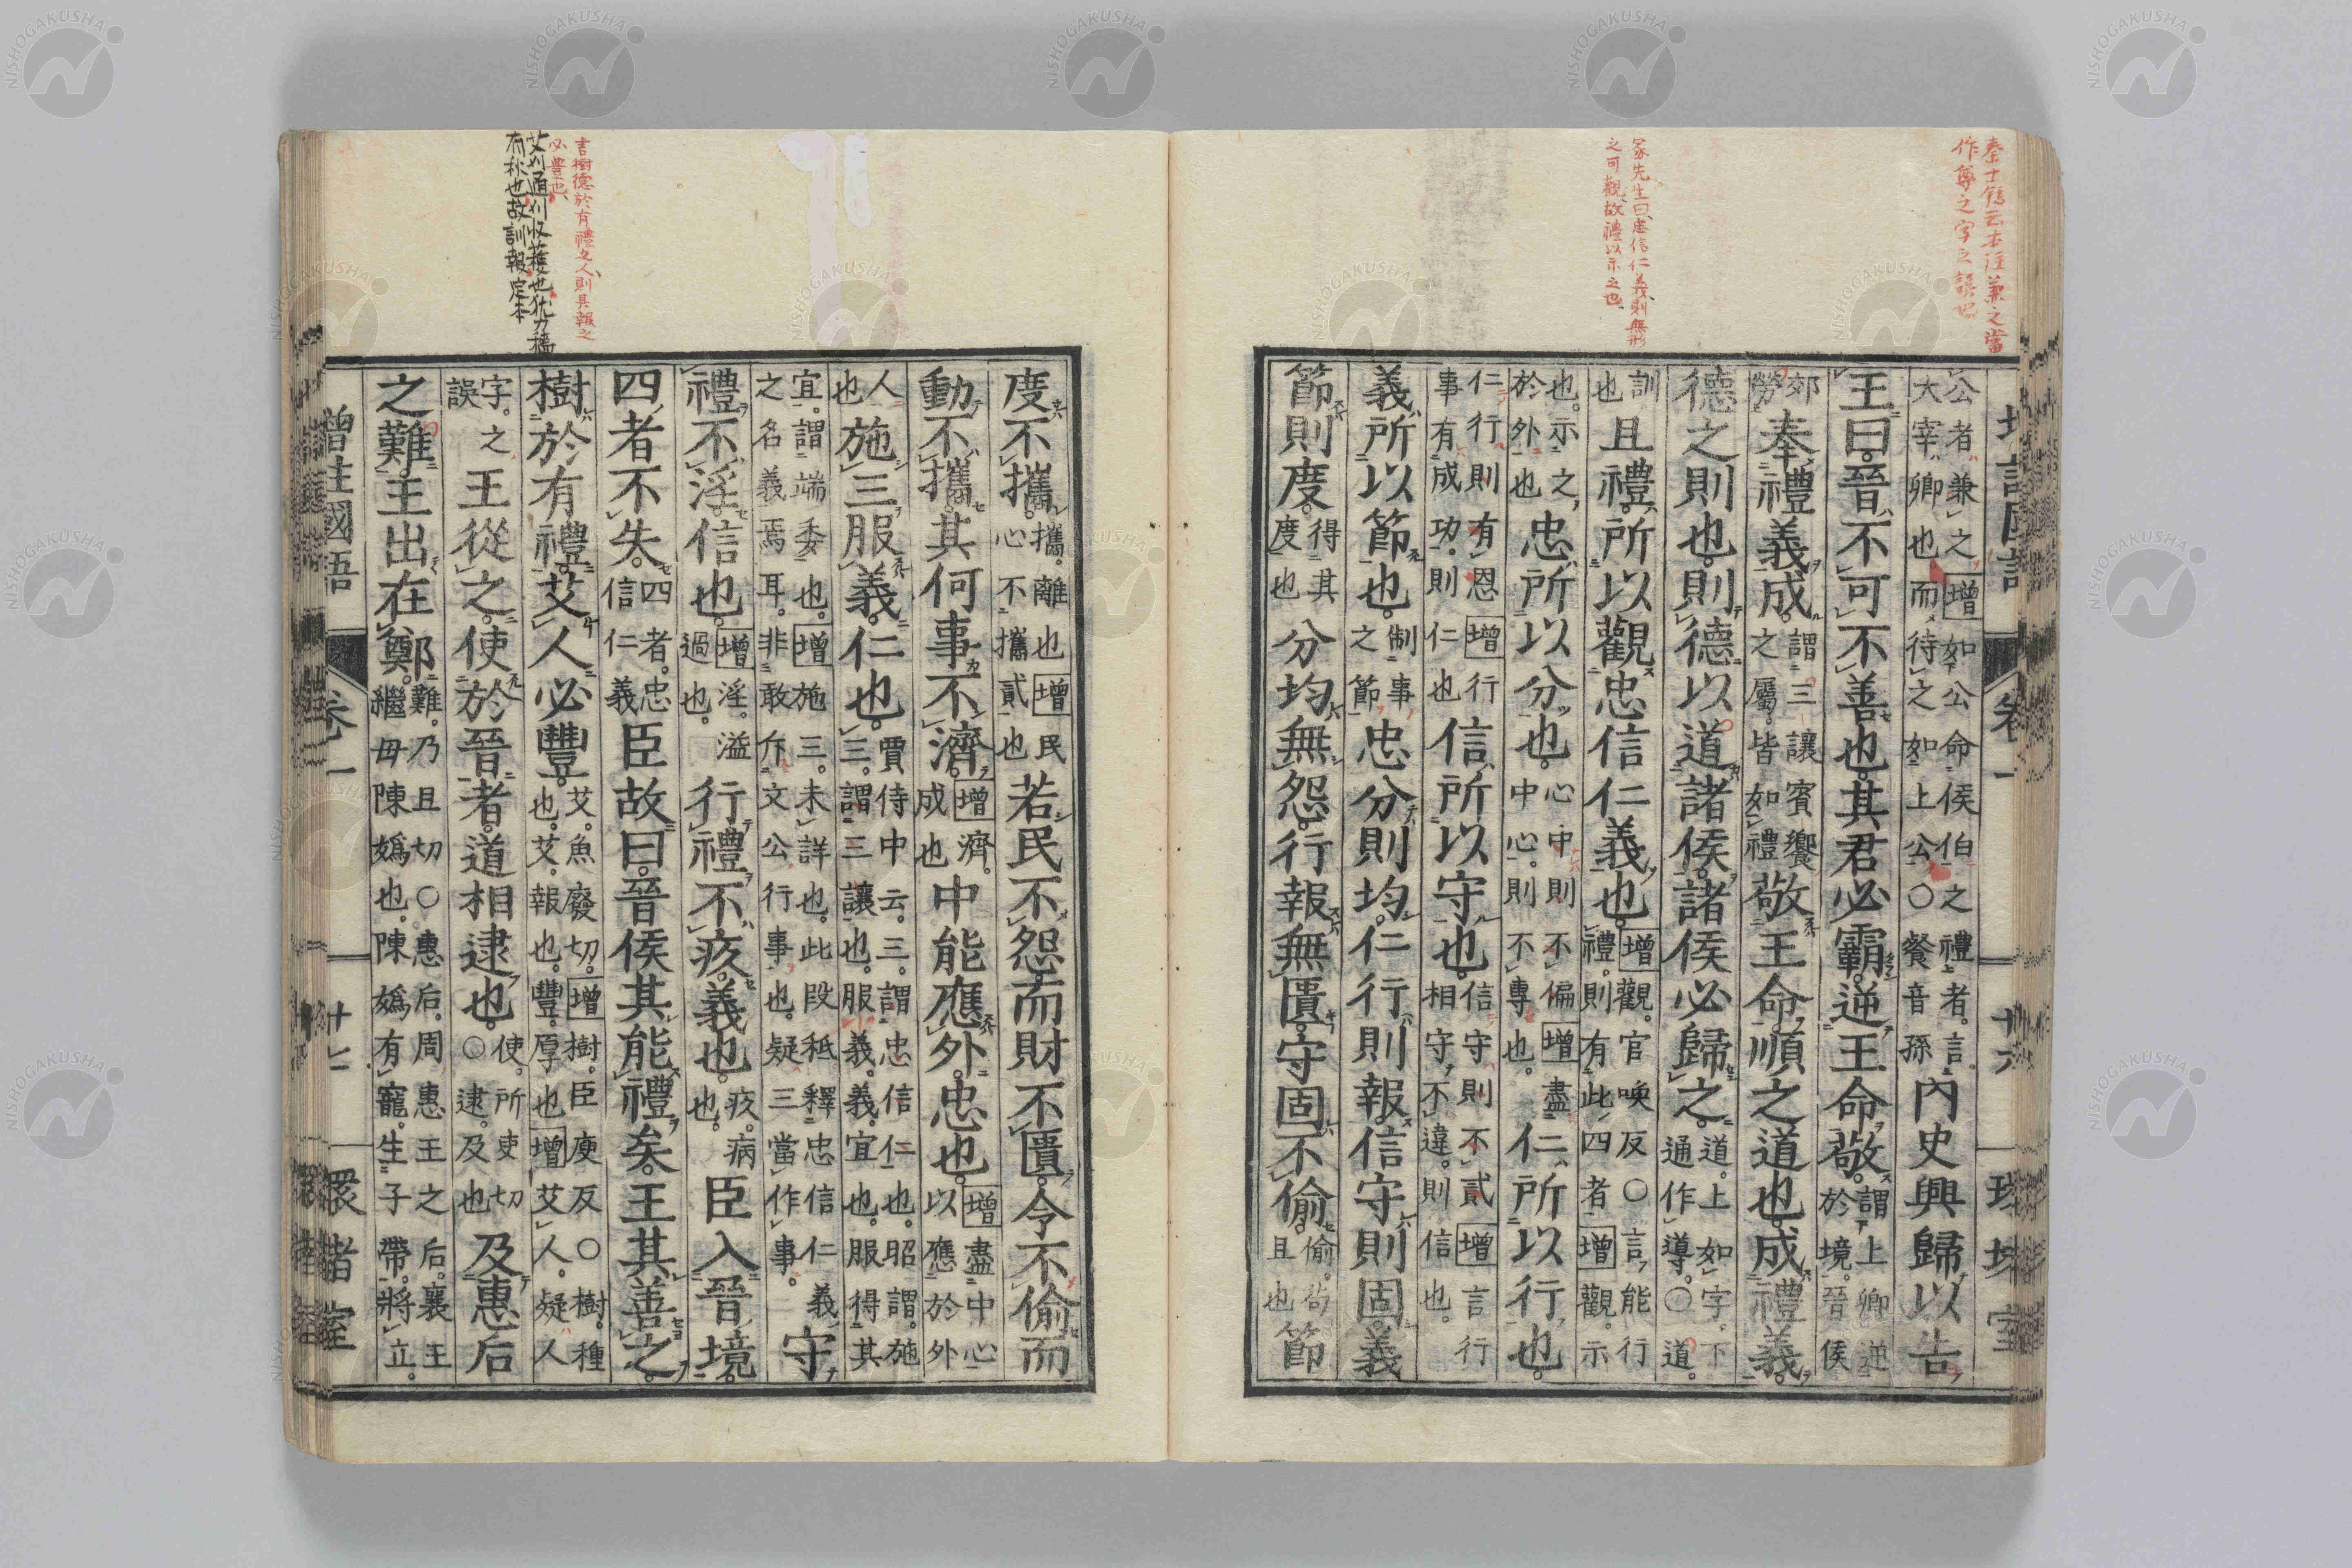 秦士鉉云本注兼之當
作尊之字之誤也
公者兼之增如公命侯伯之禮者言
大宰卿也而待之如上公○餐音孫
內史興歸以告
王曰晉不可不善也其君必霸逆王命敬
謂上卿逆
於境晉侯
郊
勞
奉禮義成
謂三讓賓饗
之屬皆如禮
敬王命順之道也成禮義
德之則也則德以道諸侯諸侯必歸之
道上如字下
通作導○道
訓
也
且禮所以觀忠信仁義也
增觀官喚反○言能行
禮則有此四者增觀示
也示之
於外也
忠所以分也
心中則不偏增盡
中心則不專也
仁所以行也
仁行則有恩增行
事有成功則仁也
信所以守也
信守則不貳增言行
相守不違則信也
義所以節也
制事
之節
忠分則均仁行則報信守則固義
節則度
得其
度也
分均無怨行報無匱守固不偷
偷苟
且也
節
冢先生曰忠信仁義則無形
之可觀故禮以示之也
度不攜
攜離也增民
心不攜貳也
若民不怨而財不匱令不偷而
動不攜其何事不濟
增濟
成也
中能應外忠也
增盡中心
以應於外
人
也
施三服義仁也
賈侍中云三謂忠信仁也昭謂施
三謂三讓也服義義宜也服得其
宜謂端委也增施三未詳也此段秪釋忠信仁義
之名義焉耳非敢斥文公行事也疑三當作事
守
禮不淫信也
增淫溢
過也
行禮不疚義也
疚病
也
臣入晉境
四者不失
四者忠
信仁義
臣故曰晉侯其能禮矣王其善之
樹於有禮艾人必豐
艾魚廢切增樹臣庾反○樹種
也艾報也豐厚也增艾人疑人
字之
誤
王從之使於晉者道相逮也
使所吏切
○逮及也
及惠后
之難王出在鄭
難乃且切○惠后周惠王之后襄王
繼母陳媯也陳媯有寵生子帶將立
增註國語
卷一
十七
環堵室
言樹德於有禮之人則其報之
必豐也
艾刈通刈收穫也猶力穡
有秋也故訓報定本